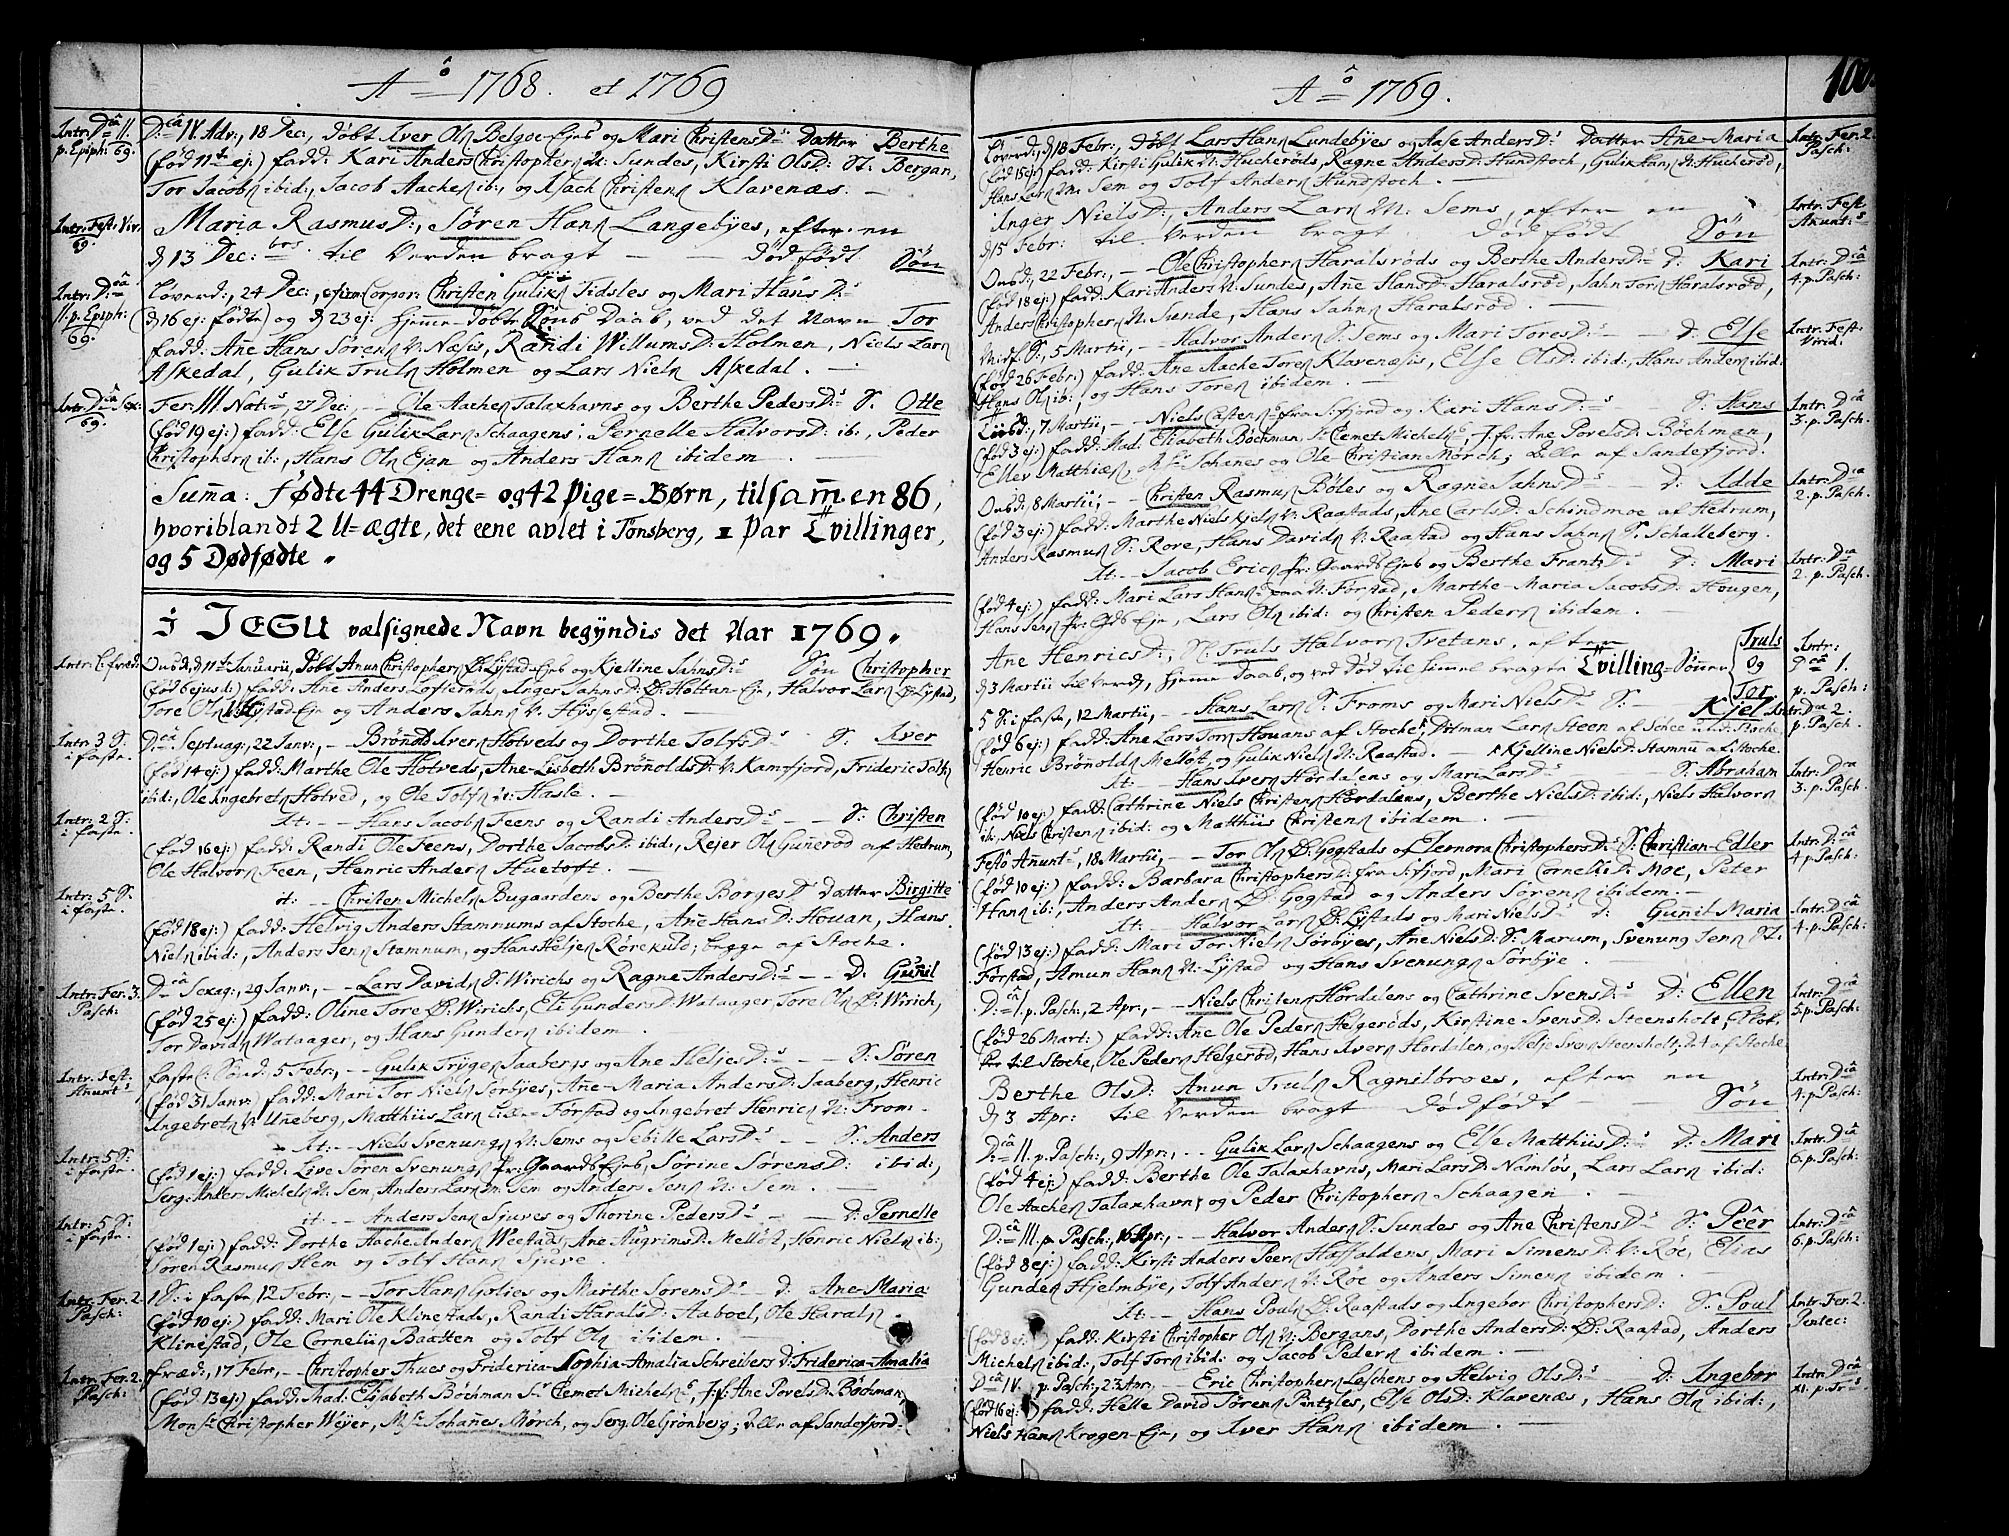 Aô 1768. et 1769
Intr: Dca 11. p. Epiph: 69.
Dca IV. Adv:, 18 Dec:, døbt Iver Ols Belgoe-Ejes og Mari ChristensD:s Datter Berthe
(fød 11t ej:) fadd: Kari Anders Christophers N: Sundes, Kirsti OlsD: St: Bergan,
Tor Jacobs ibid:, Jacob Aaches ib:, og Isach Christens Klavenæs. —
Intr: Fest: Vir: 69.
Maria RasmusD:, Søren Hans Langebÿes, efter en
d 13 Dec:brs til Verden bragt — — Dødfødt Søn
Intr: Dca 11. p. Epiph: 69.
Løverd:, 24 Dec:, Corpor: Christen Guliks Tidsles og Mari HansD:s
(d 16 ej: fødte) og d 23 ej: hjemme-døbte Søns Daab, ved det Navn Tor
fadd: Ane Hans Sørens N: Nasis, Randi WillumsD: Holmen, Niels Lars
Askedal, Gulik Truls Holmen og Lars Niels Askedal. —
Intr: Dca Sex: 69.
Fer: III Nat:s, 27 Dec:, — Ole Aaches Talaxhavns og Berthe PedersD:s S. Otte
(fød 19 ej:) fadd: Else Gulik Lars Schaagens, Pernelle HalvorsD: ib:, Peder
Christophers ib:, Hans Ols Ejan og Anders Hans ibidem —
Suma: fødte 44 Drenge= og 42 Pige=Børn, tilsamen 86,
hvoriblandt 2 U=ægte, det eene avlet i Tonsberg, 1 Par Tvillinger,
og 5 Dødfødte.
I JESU velsignede Navn begÿndis det Aar 1769.
Onsd:, d 11t Januarii, døbt Anun Christophers Ø: Lÿstad-Ejes og Kjelline JahnsD:s Søn Christopher
(fød 6 ejusd:) fadd: Ane Anders Lofterøds, Anger JahnsD: Ø: Hottan-Eje, Halvor Lars Ø: Lÿstad,
Tore Ols Lÿstad-Eje og Anders Jahns N: Hÿssestad. —
Intr: 3 S: i faste.
Dca Septuag:, 22 Janv:, — Brønold Ivers Hotveds og Dorthe TolfsD:s S: Iver
(fød 14 ej:) fadd: Marthe Ole Hotveds, Ane-Lisbeth BrønoldsD: N: Kamfjord, Frideric Tolfs
ibid:, Ole Ingebrets Hotved, og Ole Tolfs N: Hasle. —
Intr: 2 S: i faste.
It: — Hans Jacobs Feens og Randi AndersD:s — S: Christen
(fød 16 ej:) fadd: Randi Ole Feens, Dorthe JacobsD: ibid:, Rejer Ols Gunerød af Hedrum,
Ole Halvors Feen, Henric Anders Huetoft. —
Intr: 5 S: i faste.
it: — Christen Michels Bugaardens og Berthe BørgesD:s Datter Birgitte
(fød 18 ej:) fadd: Helvig Anders Stamnums af Stoche, Ane HansD: Houan, Hans
Niels ibid:, Anders Jens Stamnum, og Hans Heljes Rørekuld; begge af Stoche.
Intr: Fer: 3. Pasch:
Dca Sexag:, 29 Janv:, — Lars Davids S: Wirichs og Ragne AndersD:s — D: Gunil
(fød 25 ej:) fadd: Oline Tore Ø: Wirichs, Eli GundersD: Wataager, Tore Ols Ø: Wirich,
Tor Davids Wataager, og Hans Gunders ibidem.
Intr: Fest: Anunt:s
faste: Sønd: 5 Febr:, — Gulik Trÿges Jaabergs og Ane HeljesD:s — S: Søren
(fød 31 Janv:) fadd: Mari Tor Niels Sørbÿes, Ane-Maria AndersD: Jaaberg, Henric
Ingebrets N: Uneberg, Matthiis Lars Førstad og Ingebret Henrics N: From.
Intr: 5 S: i faste.
It: — Niels Svenungs N: Sems og Sebille LarsD:s — S: Anders
(fød 1 ej:) fadd: Live Søren Svenungs fr: Gaards Ejes, Sørine SørensD: ibid:,
Serg: Anders Michels N: Sem, Anders Lars N: Sem og Anders Jens N: Sem. —
Intr: 5 S: i faste.
it: — Anders Jens Sjuves og Thorine PedersD:s — D: Pernelle
(fød 1 ej:) fadd: Dorthe Aache Anders Weestads, Ane AugrimsD: Melløst, Henric Niels ib:,
Søren Rasmus Hem og Tolf Hans Sjuve.
Intr: Fer: 2. Pasch:
1 S: i faste, 12 Febr:, — Tor Hans Golies og Marthe SørensD:s — d: Ane-Maria
(fød 10 ej:) fadd: Mari Ole Klinestads, Randi HaralsD: Aaboel, Ole Harals
Klinestad, Ole Corneliis Baatten og Tolf Ols ibidem. —
Intr: Fer: 2. Pasch:
fræd:, 17 Febr:, — Christopher Thues og Friderica-Sophia-Amalia Schreibers D: Friderica-Amalia
(fød 13 ej:) fadd: Mad: Elisabeth Bøchman Sr Clemet Michels, J.fr: Ane PovelsD: Bøchman
Monsr Christopher Weÿer, Msr Johanes Mørch, og Serg: Ole Grønberg; Alle af Sandefjord.
Aô 1769.
100
Løverd:, d 18 Febr:, døbt Lars Hans Lundebÿes og Aase AndersD:s Datter Ane-Maria
Intr: Fer: 2. Pasch:
(fød 15 ej:) fadd: Kirsti Gulik N: Hucherøds, Ragne AndersD: Hundstoch, Gulik Hans N: Hucherød,
Hans Lars N: Sem og Tolf Anders Hundstoch. —
Intr: Fest Anunt:s
Inger NielsD:, Anders Lars N: Sems, efter en
d 15 Febr: til Verden bragt Dødfødt Søn
Intr: Dca 4. p. Pasch:
Onsd:, 22 Febr:, — Ole Christophers Haralsrøds og Berthe AndersD:s D: Kari
(fød 18 ej:) fadd: Kari Anders N: Sundes, Ane HansD: Haralsrød, Jahn Tors Haralsrød,
Anders Christophers N: Sunde, Hans Jahns Haralsrød. —
Intr: Fest: Virid.
Midf: S:, 5 Martii, — Halvor Anders S: Sems og Mari ToresD:s — D: Else
(fød 26 Febr:) fadd: Ane Aache Tores Klavenæsis, Else OlsD: ibid:, Hans Anders ibid:
Hans Ols ib:, og Hans Tores ibidem. —
Intr: Dca 3. p. Pasch:
Tirsd:, 7 Martii, — Niels Castens fra S:fjord og Kari HansD:s — S: Hans
(fød 3 ej:) fadd: Mad: Elisabeth Bøchman, Sr Clemet Michels, J.fr: Ane PovelsD: Bøchman,
Ellev Matthies, Msr Johanes og Ole Christian Mørch; Alle af Sandefjord.
Intr: Dca 2. p. Pasch:
Onsd:, 8 Martii, — Christen Rasmus Bøles og Ragne JahnsD:s — D: Adde
(fød 3 ej:) fadd: Marthe Niels Kjels N: Raastads, Ane CarlsD: Schindmoe af Hedrum,
Anders Rasmus S: Rore, Hans Davids N: Raastad og Hans Jahns S: Schalleberg.
Intr: Dca 2. p. Pasch:
It: — Jacob Erics fr: Gaards Ejes og Berthe FrantsD:s D: Mari
(fød 4 ej:) fadd: Mari Lars Hans N: Førstad, Marthe-Maria JacobsD: Hougen,
Hans Jens fr: Gds Eje, Lars Ols ibid: og Christen Peders ibidem. —
Intr: Dca 1. p. Pasch:
Ane HenricsD:, N: Truls Halvors Tvetans, efter
d 3 Martii til Verd:, hjemme daab, og ved Død til himel bragte Tvilling=Søner Truls og Tor
Intr: Dca 2. p. Pasch.
5 S: i faste, 12 Martii, — Hans Lars S: Froms og Mari NielsD:s S: — Kjel
(fød 6 ej:) fadd: Ane Lars Tors Houans af Stoche, Ditman Lars Steen af Schee
Henric Brønolds Melløst, og Gulik Niels N: Raastad. — Kjelline NielsD: Stamnu af Stoche.
Intr: Dca 3. p. Pasch.
It: — Hans Ivers Hørdalens og Mari LarsD:s — S: Abraham
(fød 10 ej:) fadd: Cathrine Niels Christens Hørdalens, Berthe NielsD: ibid:, Niels Halvors
ib:, Niels Christens ibid: og Matthiis Christens ibidem. —
Intr: Dca 4 p. Pasch:
Festo Anunt:s, 18 Martii, — Tor Ols Ø: Gogstads og Lenora ChristophersD:s S: Christian-Edler
(fød 10 ej:) fadd: Barbara ChristophersD: fra S:fjord, Mari CorneliiD: Moe, Peter
Hans ib:, Anders Anders Ø: Gogstad og Anders Sørens ibidem. —
Intr: Dca 4. p. Pasch:
It: — Halvor Lars Ø: Lÿstads og Mari NielsD:s D: Gunil Maria
(fød 13 ej:) fadd: Mari Tor Niels Sørbÿes, Ane NielsD: S: Marum, Svenung Jens St:
Førstad, Amun Hans N: Lÿstad og Hans Svenungs Sørbÿe. —
Intr: Dca 5. p. Pasch:
Dca 1. p. Pasch:, 2 Apr:, — Niels Christens Hørdalens og Cathrine SvensD:s D: Ellen
(fød 26 Mart:) fadd: Ane Ole Peders Helgerøds, Kirstine SvensD: Steensholt,
til Stoche, Ole Peders Helgerød, Hans Ivers Hørdalen, og Helje Svens Steensholt, af Stoche
Intr: Dca 4. p. Pasch:
Berthe OlsD:, Anun Truls Ragnilbroes, efter en
d 3 Apr: til Verden bragt Dødfødt — Søn
Intr: Dca 6. p. Pasch:
Dca 11. p. Pasch:, 9 Apr:, — Gulik Lars Schaagens og Else MatthiisD:s D: Mari
(fød 4 ej:) fadd: Berthe Ole Talaxhavns, Mari LarsD: Namløs, Lars Lars ibid:
Ole Aaches Talaxhavn, og Peder Christophers Schaagen. —
Intr: Dca 6. p. Pasch:
Dca III. p. Pasch:, 16 Apr:, — Halvor Anders S: Sundes og Ane ChristensD:s S: Peêr
(fød 8 ej:) fadd: Kirsti Anders Peers Haffaldens, Mari SimensD: V: Røe, Elias
Gunders Hjelmbÿe, Tolf Anders V: Røe og Anders Simens ibidem. —
Intr: Fer: 2. Pentec:
It: — Hans Pouls Ø: Raastads og Ingebor ChristophersD: S: Poul
(fød 8 ej:) fadd: Kirsti Christopher Ols N: Bergans, Dorthe AndersD: Ø: Raastad, Anders
Michels ibid:, Tolf Tors ibid: og Jacob Peders ibidem. —
Intr: Dca XI. p. Tr:s
Dca IV. p. Pasch:, 23 Apr:, — Eric Christophers Leschens og Helvig OlsD:s — D: Ingebor
(fød 16 ej:) fadd: Helle David Sørens Pintzles, Else OlsD: Klavenæs, Hans Ols ibid:,
Niels Hans Krogen-Eje, og Iver Hans ibidem —